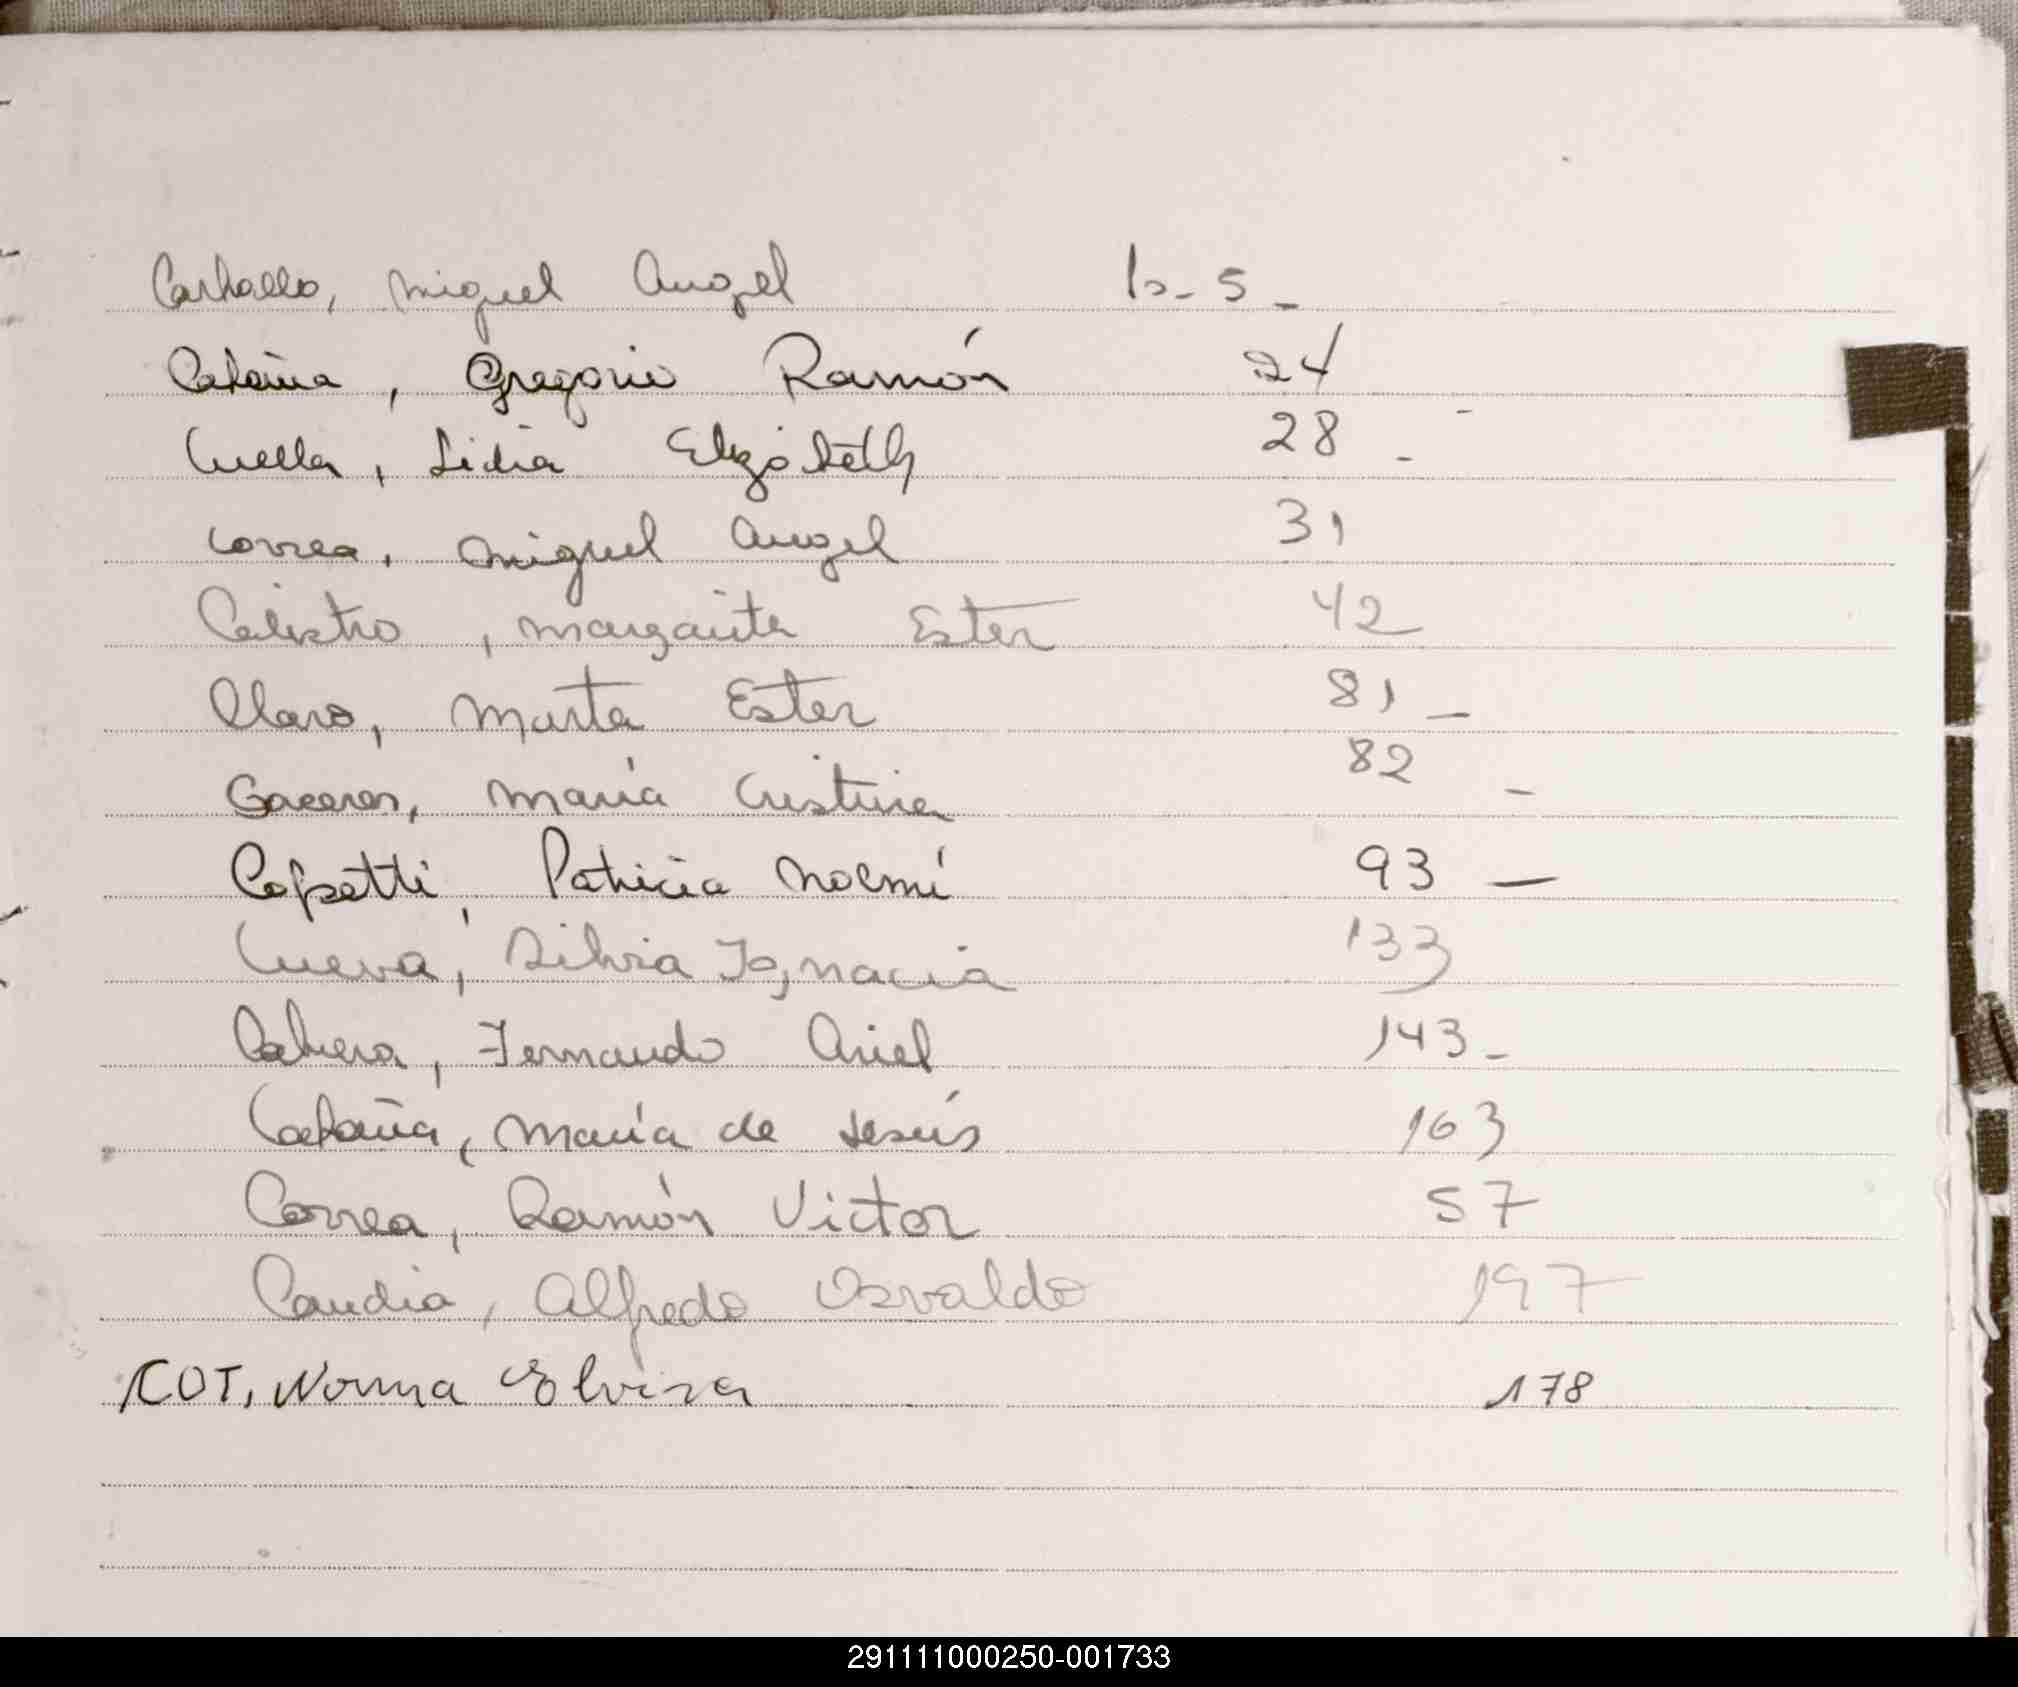 Carballo, Miguel Angel 15- 5 -
Cataña, Gregorio Ramón 24
Cuella, Lidia Elizabeth 28 -
Correa, Miguel Angel 31
Calistro, Margarita Ester 42
Claro, Marta Ester 81 -
Caceres, María Cristina 82 -
Copsetti, Patricia Noemí 93 -
Cueva, Silvia Ignacia 133
Cabrera, Fernando Ariel 143 -
Cataña, María de Jesús 163
Correa, Ramón Victor 57
Candia, Alfredo Osvaldo 197
COT, Norma Elvira 178
291111000250-001733